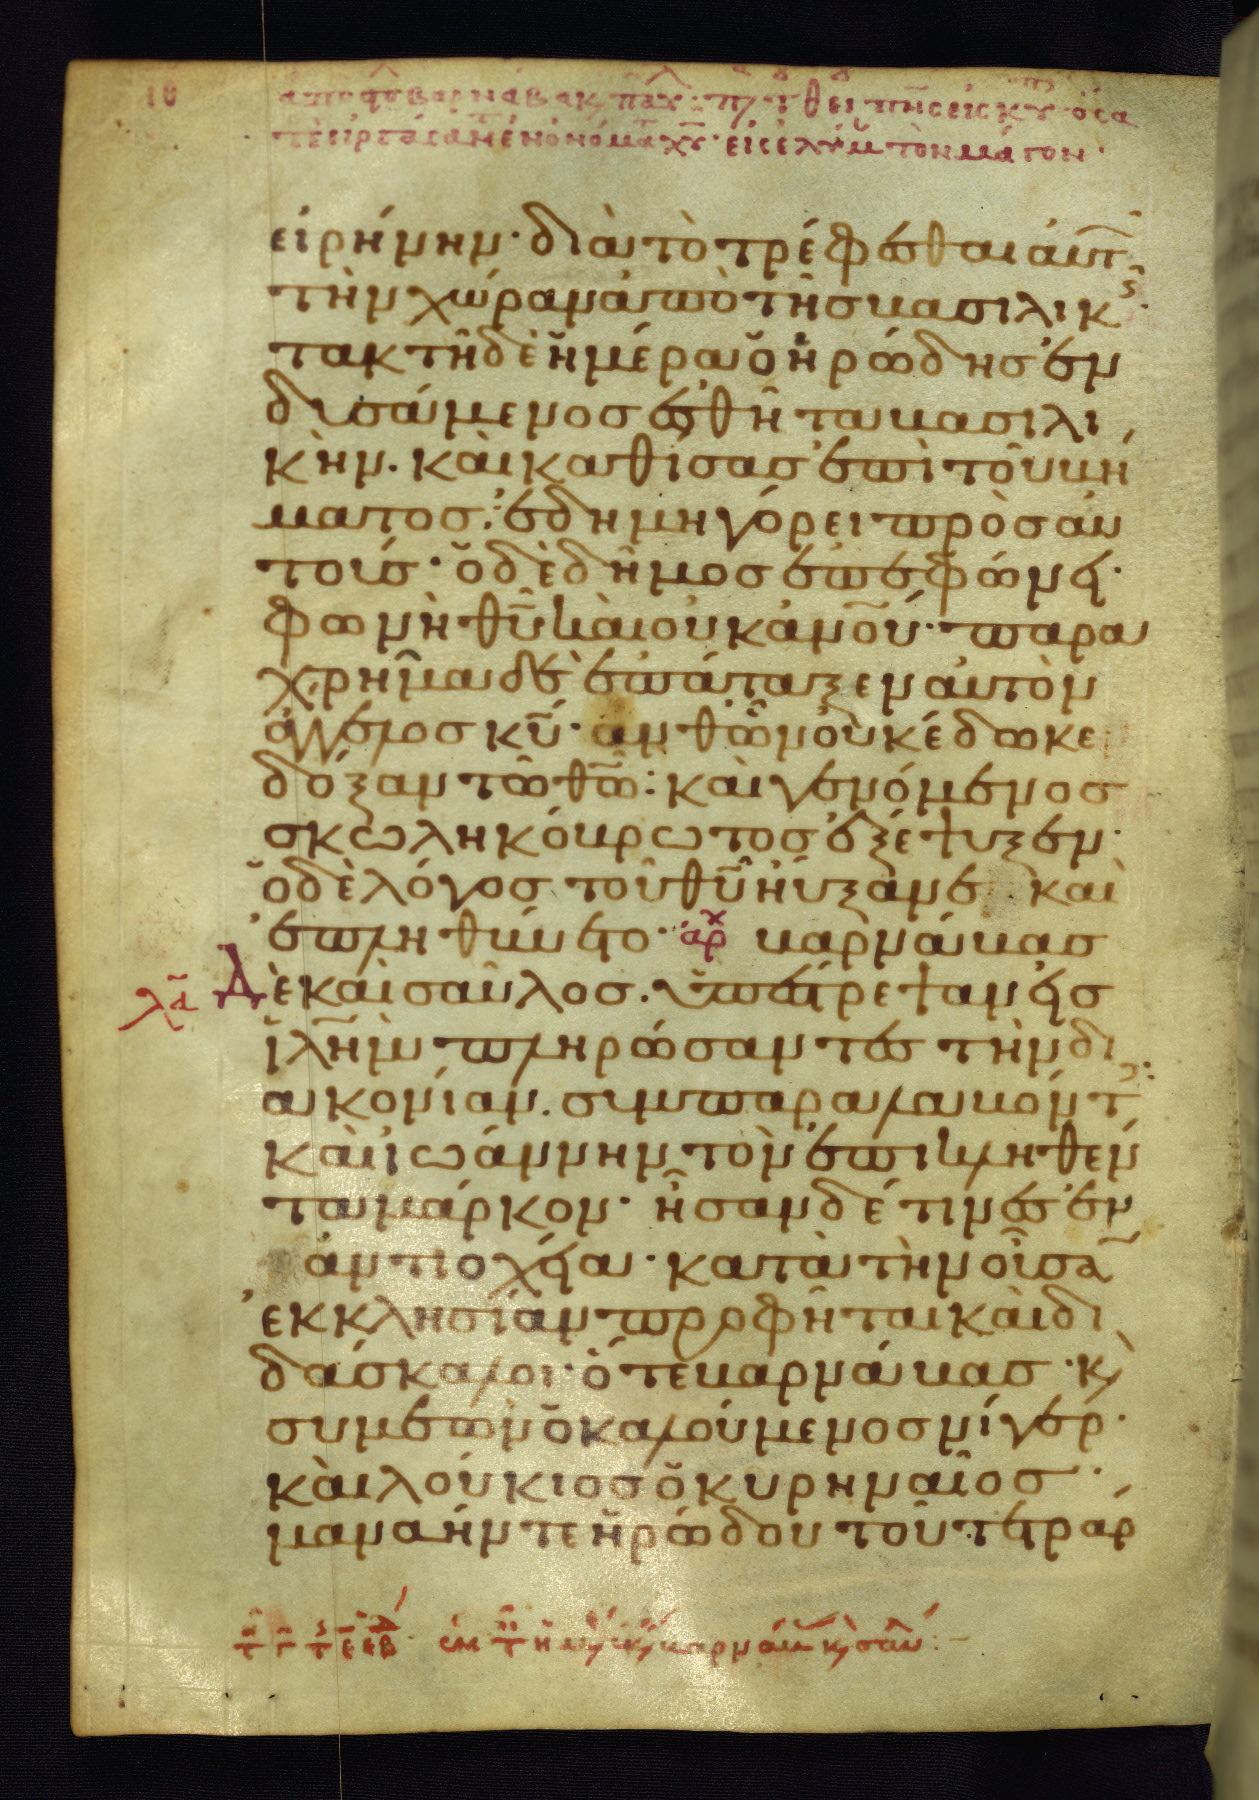 εἰρήνην· διὰ τὸ τρέφεσθαι αὐτ
τὴν χώραν ἀπὸ τῆς βασιλικ
τακτῆ δὲ ἡμέρα ὁ ἡρώδης ἐν
δυσάμενος ἐσθῆτα βασιλι
κὴν. καὶ καθίσας ἐπὶ τοῦ βή
ματος· ἐδημηγόρει πρὸς αὐ
τούς· ὁ δὲ δῆμος ἐπεφώνει·
φωνὴ θυ καὶ οὐκ ἀνου· παρα
χρῆμα δὲ ἐπάταξεν αὐτὸν
ἄγγελος κυ· ἀνθ ὧν οὐκ ἔδωκε
δόξαν τῶ θω: καὶ γενόμενος
σκωληκόβρωτος ἐξέψυξεν·
ὁ δὲ λόγος τοῦ θυ ηὔξανε καὶ
ἐπληθύνετο· ἀρχ βαρνάβας
λα Δὲ καὶ σαῦλος. ὑπέστρεψαν εἰς
ιλημ πληρώσαντες τὴν δι
ακονίαν. συμπαραλαβόντ
καὶ ἰωάννην τὸν ἐπικληθέν
τα μάρκον· ἦσαν δέ τινες ἐν
ἀντιοχεία· κατὰ τὴν οὖσα
ἐκκλησίαν προφῆται καὶ δι
δάσκαλοι· ὅ τε βαρνάβας · κ
συμεὼν ὁ καλούμενος νίγερ·
καὶ λούκιος ὁ κυρηναῖος·
μαναήν τε ἡρώδου τοῦ τετραρ